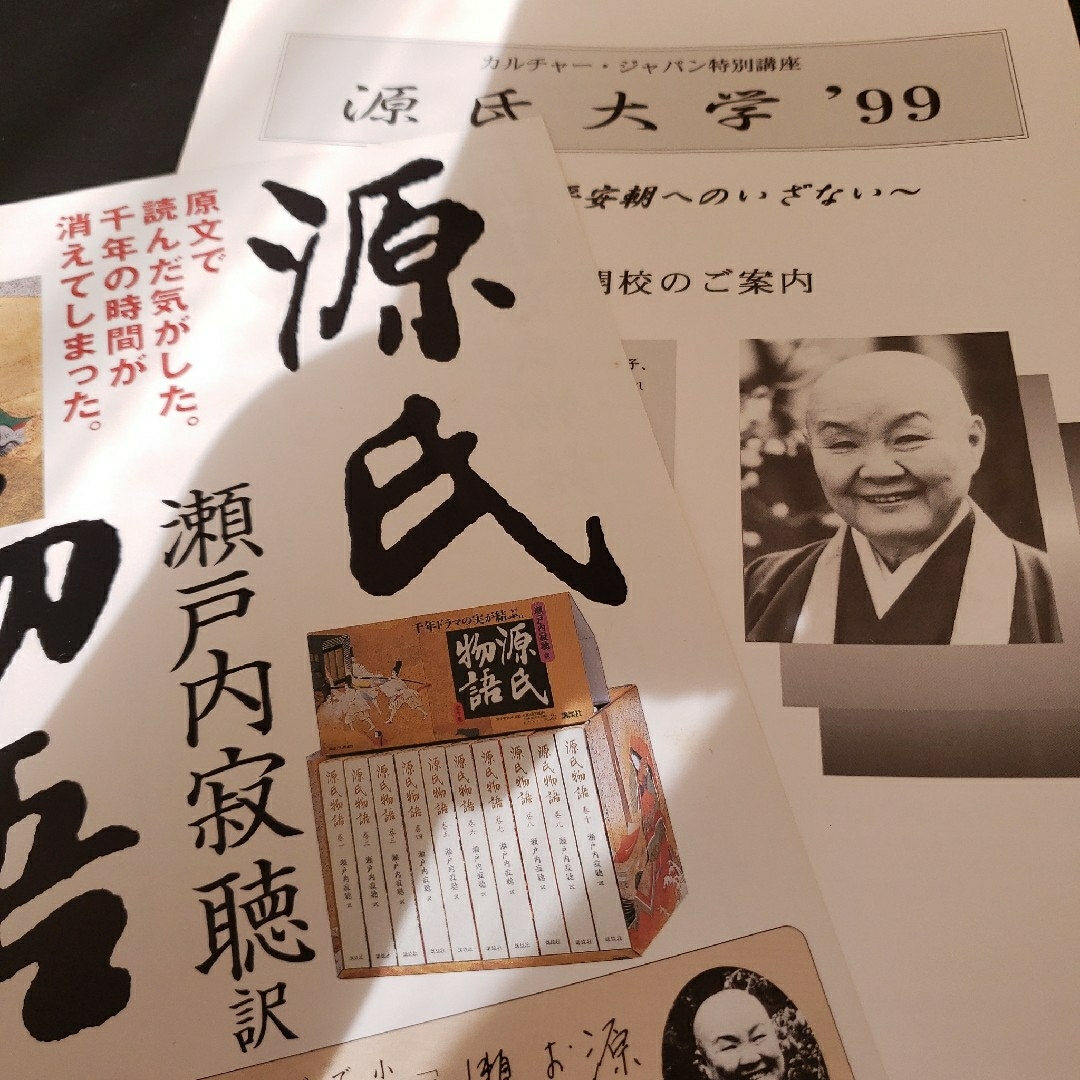 カルチャー・ジャパン特別講座
源氏大学 '99
平安朝へのいざない～
開校のご案内
子、
源氏
物語
原文で
読んだ気がした。
千年の時間が
消えてしまった。
瀬戸内寂聴訳
千年ドラマの実が結ぶ。
瀬戸内寂聴 訳
源氏
物語
講談社
源氏物語 巻一 瀬戸内寂聴 訳 講談社
源氏物語 巻二 瀬戸内寂聴 訳 講談社
源氏物語 巻三 瀬戸内寂聴 訳 講談社
源氏物語 巻四 瀬戸内寂聴 訳 講談社
源氏物語 巻五 瀬戸内寂聴 訳 講談社
源氏物語 巻六 瀬戸内寂聴 訳 講談社
源氏物語 巻七 瀬戸内寂聴 訳 講談社
源氏物語 巻八 瀬戸内寂聴 訳 講談社
源氏物語 瀬戸内寂聴 訳 講談社
源氏物語 巻十 瀬戸内寂聴 訳 講談社
源
お
瀬
小
で